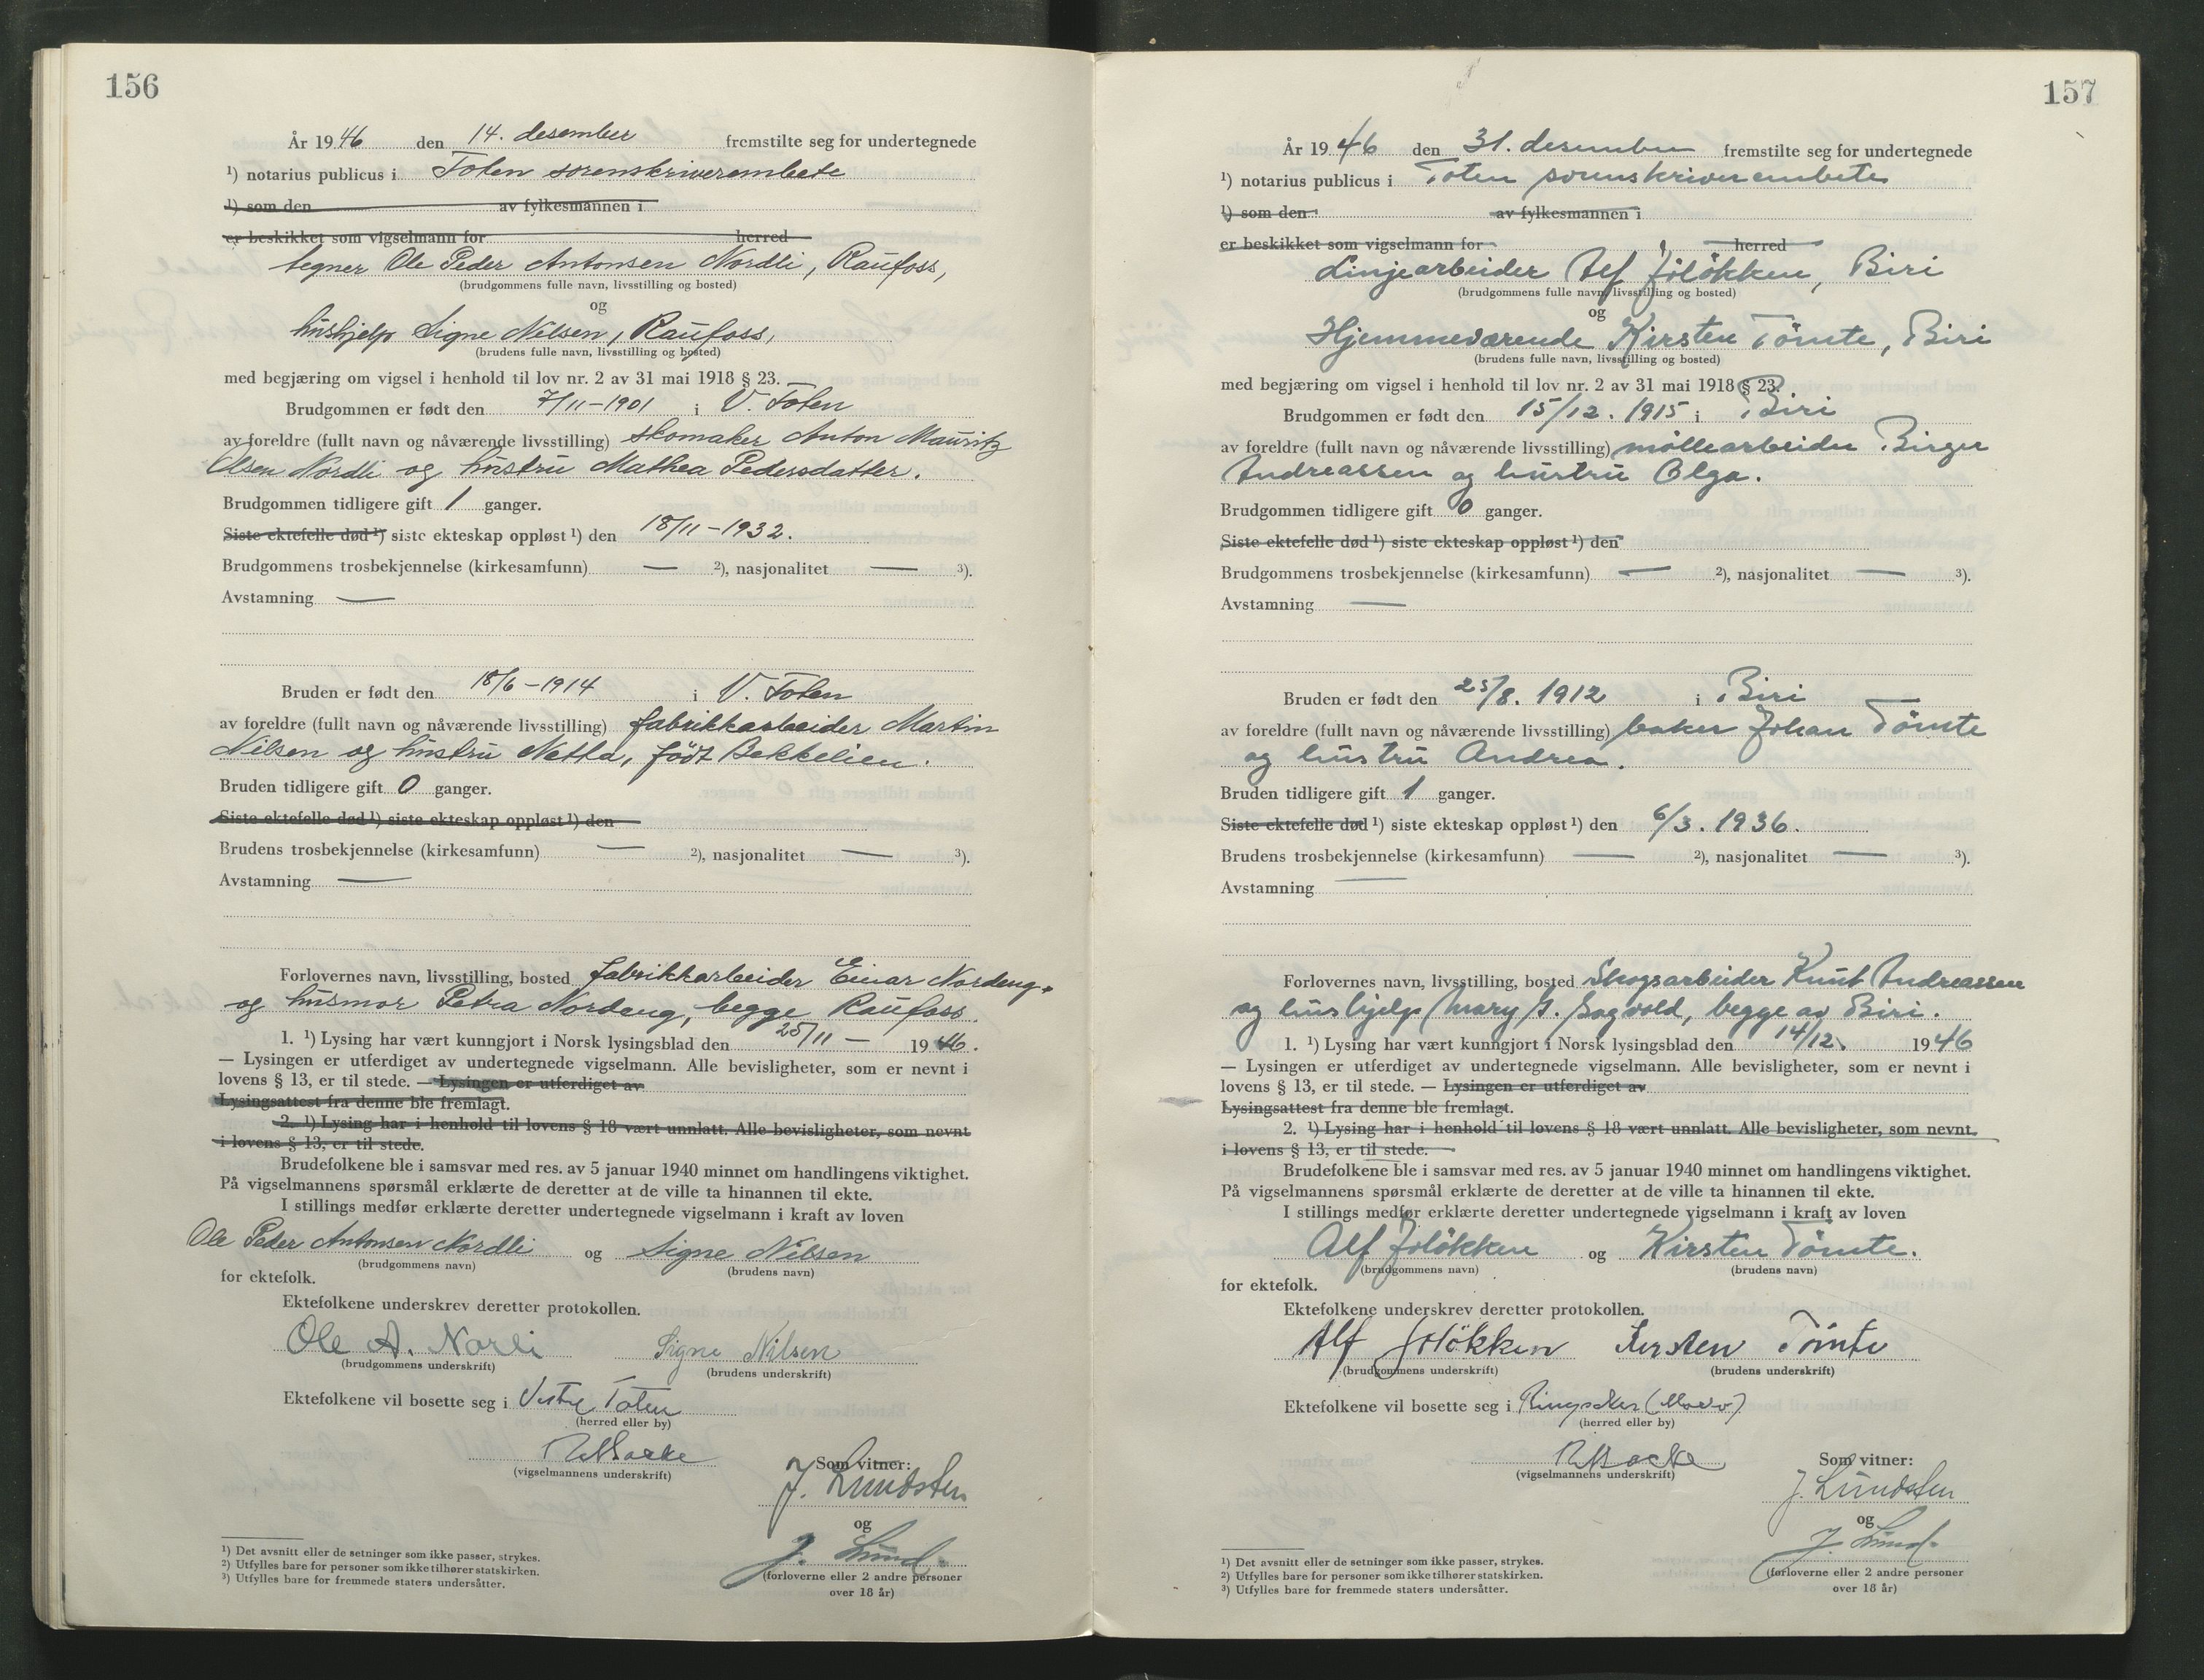 156
År 1946 den 14. desember fremstilte seg for undertegnede
¹) notarius publicus i Toten sorenskriverembete
¹) som den av fylkesmannen i
er beskikket som vigselmann for herred
tegner Ole Peder Antonsen Nordli, Raufoss,
(brudgommens fulle navn, livsstilling og bosted)
og
hushjelp Signe Nilsen, Raufoss,
(brudens fulle navn, livsstilling og bosted)
med begjæring om vigsel i henhold til lov nr. 2 av 31 mai 1918 § 23.
Brudgommen er født den 7/11-1901 i V. Toten
av foreldre (fullt navn og nåværende livsstilling) skomaker Anton Mauritz
Olsen Nordli og hustru Mathea Pedersdatter.
Brudgommen tidligere gift 1 ganger.
Siste ektefelle død ¹) siste ekteskap oppløst ¹) den 18/11-1932.
Brudgommens trosbekjennelse (kirkesamfunn) — ²), nasjonalitet — ³).
Avstamning —
Bruden er født den 18/6-1914 i V. Toten
av foreldre (fullt navn og nåværende livsstilling) fabrikkarbeider Martin
Nilsen og hustru Netta, født Bekkelien.
Bruden tidligere gift 0 ganger.
Siste ektefelle død ¹) siste ekteskap oppløst ¹) den
Brudens trosbekjennelse (kirkesamfunn) — ²), nasjonalitet — ³).
Avstamning —
Forlovernes navn, livsstilling, bosted fabrikkarbeider Einar Nordeng
og husmor Petra Nordeng, begge Raufoss.
1. ¹) Lysing har vært kunngjort i Norsk lysingsblad den 25/11 — 1946.
— Lysingen er utferdiget av undertegnede vigselmann. Alle bevisligheter, som er nevnt i
lovens § 13, er til stede. — Lysingen er utferdiget av
Lysingsattest fra denne ble fremlagt.
2. ¹) Lysing har i henhold til lovens § 18 vært unnlatt. Alle bevisligheter, som nevnt
i lovens § 13, er til stede.
Brudefolkene ble i samsvar med res. av 5 januar 1940 minnet om handlingens viktighet.
På vigselmannens spørsmål erklærte de deretter at de ville ta hinannen til ekte.
I stillings medfør erklærte deretter undertegnede vigselmann i kraft av loven
Ole Peder Antonsen Nordli og Signe Nilsen
(brudgommens navn) (brudens navn)
for ektefolk.
Ektefolkene underskrev deretter protokollen.
Ole A. Norli Signe Nilsen
(brudgommens underskrift) (brudens underskrift)
Ektefolkene vil bosette seg i Vestre Toten
(herred eller by)
(vigselmannens underskrift)
Som vitner:
J. Lundsten
og
J. Lund.
(forloverne eller 2 andre personer
over 18 år)
¹) Det avsnitt eller de setninger som ikke passer, strykes.
²) Utfylles bare for personer som ikke tilhører statskirken.
³) Utfylles bare for fremmede staters undersåtter.
157
År 1946 den 31. desember fremstilte seg for undertegnede
¹) notarius publicus i Toten sorenskriverembete
¹) som den av fylkesmannen i
er beskikket som vigselmann for herred
Linjearbeider Alf Jöløkken, Biri
(brudgommens fulle navn, livsstilling og bosted)
og
Hjemmeværende Kirsten Tömte, Biri
(brudens fulle navn, livsstilling og bosted)
med begjæring om vigsel i henhold til lov nr. 2 av 31 mai 1918 § 23.
Brudgommen er født den 15/12. 1915 i Biri
av foreldre (fullt navn og nåværende livsstilling) möllearbeider Birger
Andreassen og hustru Olga.
Brudgommen tidligere gift 0 ganger.
Siste ektefelle død ¹) siste ekteskap oppløst ¹) den
Brudgommens trosbekjennelse (kirkesamfunn) — ²), nasjonalitet — ³).
Avstamning —
Bruden er født den 25/8. 1912 i Biri
av foreldre (fullt navn og nåværende livsstilling) baker Johan Tömte
og hustru Andrea.
Bruden tidligere gift 1 ganger.
Siste ektefelle død ¹) siste ekteskap oppløst ¹) den 6/3. 1936.
Brudens trosbekjennelse (kirkesamfunn) — ²), nasjonalitet — ³).
Avstamning —
Forlovernes navn, livsstilling, bosted Skogsarbeider Knut Andreassen
og hushjelp Mary S. Sagvold, begge av Biri.
1. ¹) Lysing har vært kunngjort i Norsk lysingsblad den 14/12. 1946
— Lysingen er utferdiget av undertegnede vigselmann. Alle bevisligheter, som er nevnt i
lovens § 13, er til stede. — Lysingen er utferdiget av
Lysingsattest fra denne ble fremlagt.
2. ¹) Lysing har i henhold til lovens § 18 vært unnlatt. Alle bevisligheter, som nevnt
i lovens § 13, er til stede.
Brudefolkene ble i samsvar med res. av 5 januar 1940 minnet om handlingens viktighet.
På vigselmannens spørsmål erklærte de deretter at de ville ta hinannen til ekte.
I stillings medfør erklærte deretter undertegnede vigselmann i kraft av loven
Alf Jöløkken og Kirsten Tömte.
(brudgommens navn) (brudens navn)
for ektefolk.
Ektefolkene underskrev deretter protokollen.
Alf Kirsten Tömte
(brudgommens underskrift) (brudens underskrift)
Ektefolkene vil bosette seg i Ringsaker (Moelv)
(herred eller by)
(vigselmannens underskrift)
Som vitner:
J. Lundsten
og
J. Lund.
(forloverne eller 2 andre personer
over 18 år)
¹) Det avsnitt eller de setninger som ikke passer, strykes.
²) Utfylles bare for personer som ikke tilhører statskirken.
³) Utfylles bare for fremmede staters undersåtter.